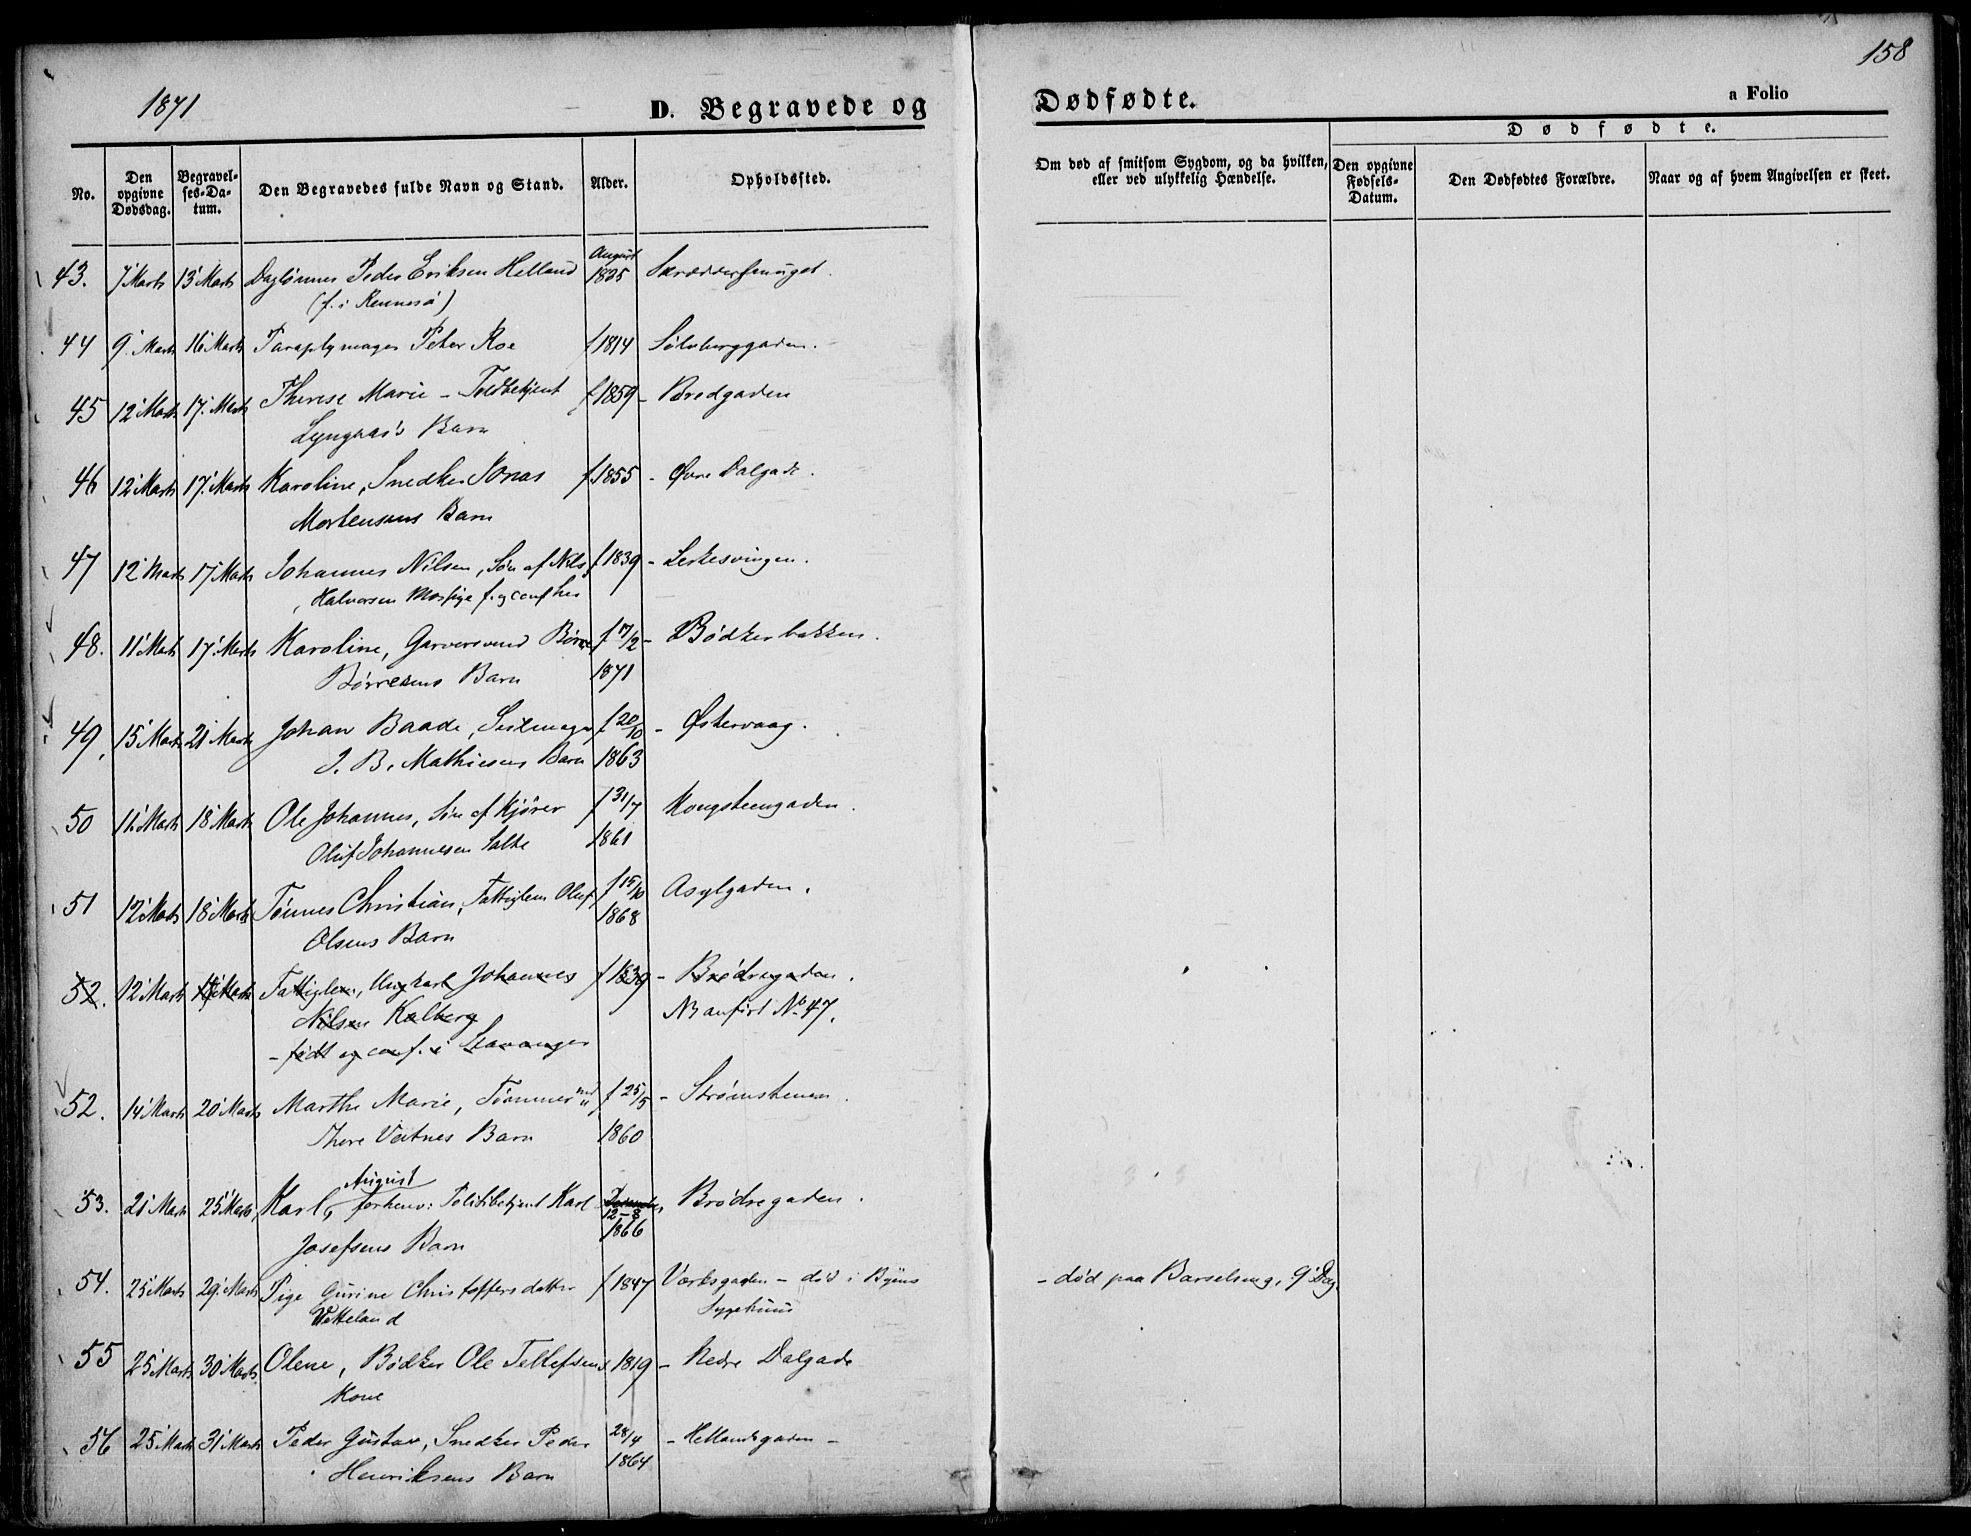 158
1871
D. Begravede og Dødfødte.
a Folio
No.
Den opgivne Dødsdag.
Begravelses-Datum.
Den Begravedes fulde Navn og Stand.
Alder.
Opholdssted.
Om død af smitsom Sygdom, og da hvilken, eller ved ulykkelig Hændelse.
Dødfødte.
Den opgivne Fødsels-Datum.
Den Dødfødtes Forældre.
Naar og af hvem Angivelsen er skeet.
August
43. 7 Marts 13 Marts Daglønner Peder Eriksen Helland 1825
(f. i Rennesø)
44 9 Marts 16 Marts Paraplymager Peter Roe f 1814 Sølvberggaden.
45 12 Marts 17 Marts Therese Marie – Toldbetjent f 1859 – Bredgaden
Barn
46 12 Marts 17 Marts Karoline, Snedker Jonas f 1855 – Øvre Dalgade.
Mortensens Barn
47 12 Marts 17 Marts Johannes Nilsen, Søn af Nils f 1839 –
Halvorsen Mossige f. og conf her
48. 11 Marts 17 Marts Karoline, Garversvend Børre f 17/2 – Bødkerbakken.
Børresens Barn 1871
49. 15 Marts 21 Marts Johan Baade, Seilmager f 20/10 – Østervaag.
J. B. Mathiesens Barn 1863
50 11 Marts 18 Marts Ole Johannes, Søn af Kjører f 31/7 Kongsteengaden.
Oluf Johannesen Salte 1861
51 12 Marts 18 Marts Tønnes Christian, Fattiglem Oluf f 15/10 Asylgaden.
Olsens Barn 1868
52. 12 Marts Marts Fattiglem, Ungkarl Johannes f 1839 – Brødregaden.
Nilsen Kalberg NB anført No 47.
– født og conf. i Stavanger
52. 14 Marts 20 Marts Marthe Marie, Tømmermd f 25/5 – Strømstenen.
Thore Vatnes Barn 1860
August
53. 21 Marts 25 Marts Karl, forhenv: Politibetjent Karl 12–8 Brødregaden.
Josefsens Barn 1866
54. 25 Marts 29 Marts Pige Gurine Christoffersdatter f 1847 Værksgaden – død i Byens – død paa Barselseng, 9 Dag.
Vetteland Sygehuus
55 25 Marts 30 Marts Olene, Bødker Ole Tellefsens 1819 – Nedre Dalgade
Kone
56 25 Marts 31 Marts Peder Gustav, Snedker Peder 28/4 – Hetlandsgaden –
Henriksens Barn 1864